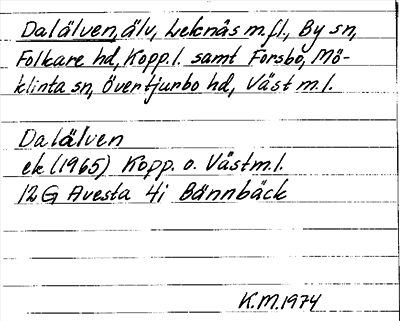 Dalälven, älv, Leknäs m.fl., By sn,
Folkare hd, Kopp. l. samt Forsbo, Mö-
klinta sn, Övertjurbo hd, Västm. l.
Dalälven
ek (1965) Kopp. o. Västm. l.
12 G Avesta 4i Bännbäck
K.M. 1974